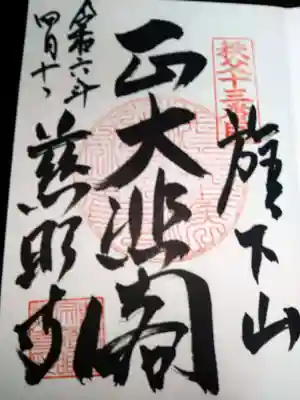 秩父十三番
旗下山
正大悲閣
令和六年
四月十一
慈眼寺